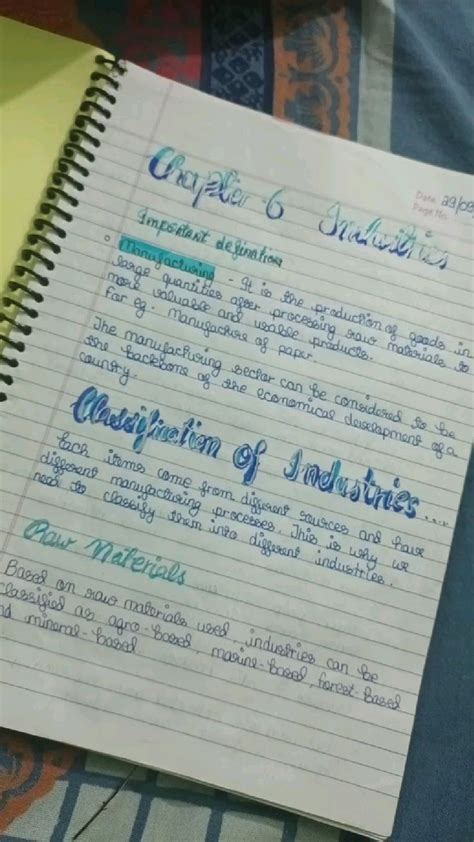 Date 29/09
Page No.
Chapter-6 Industries
Important defination
Manufacturing - It is the production of goods in
large quantities after processing raw materials to
more valuable and usable products.
For eg. Manufacture of paper.
The manufacturing sector can be considered to be
the backbone of the economical development of a
country.
Classification of Industries....
Each items come from different sources and have
different manufacturing processes. This is why we
need to classify them into different industries.
Raw Materials
Based on raw materials used, industries can be
classified as agro-based, marine-based, forest-based
nd mineral-based